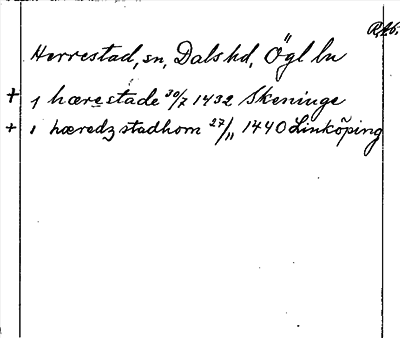 Herrestad, sn, Dals hd, Ögl ln
+ i hærestade 30/7 1432 Skeninge
+ i hæredz stadhom 27/11 1440 Linköping